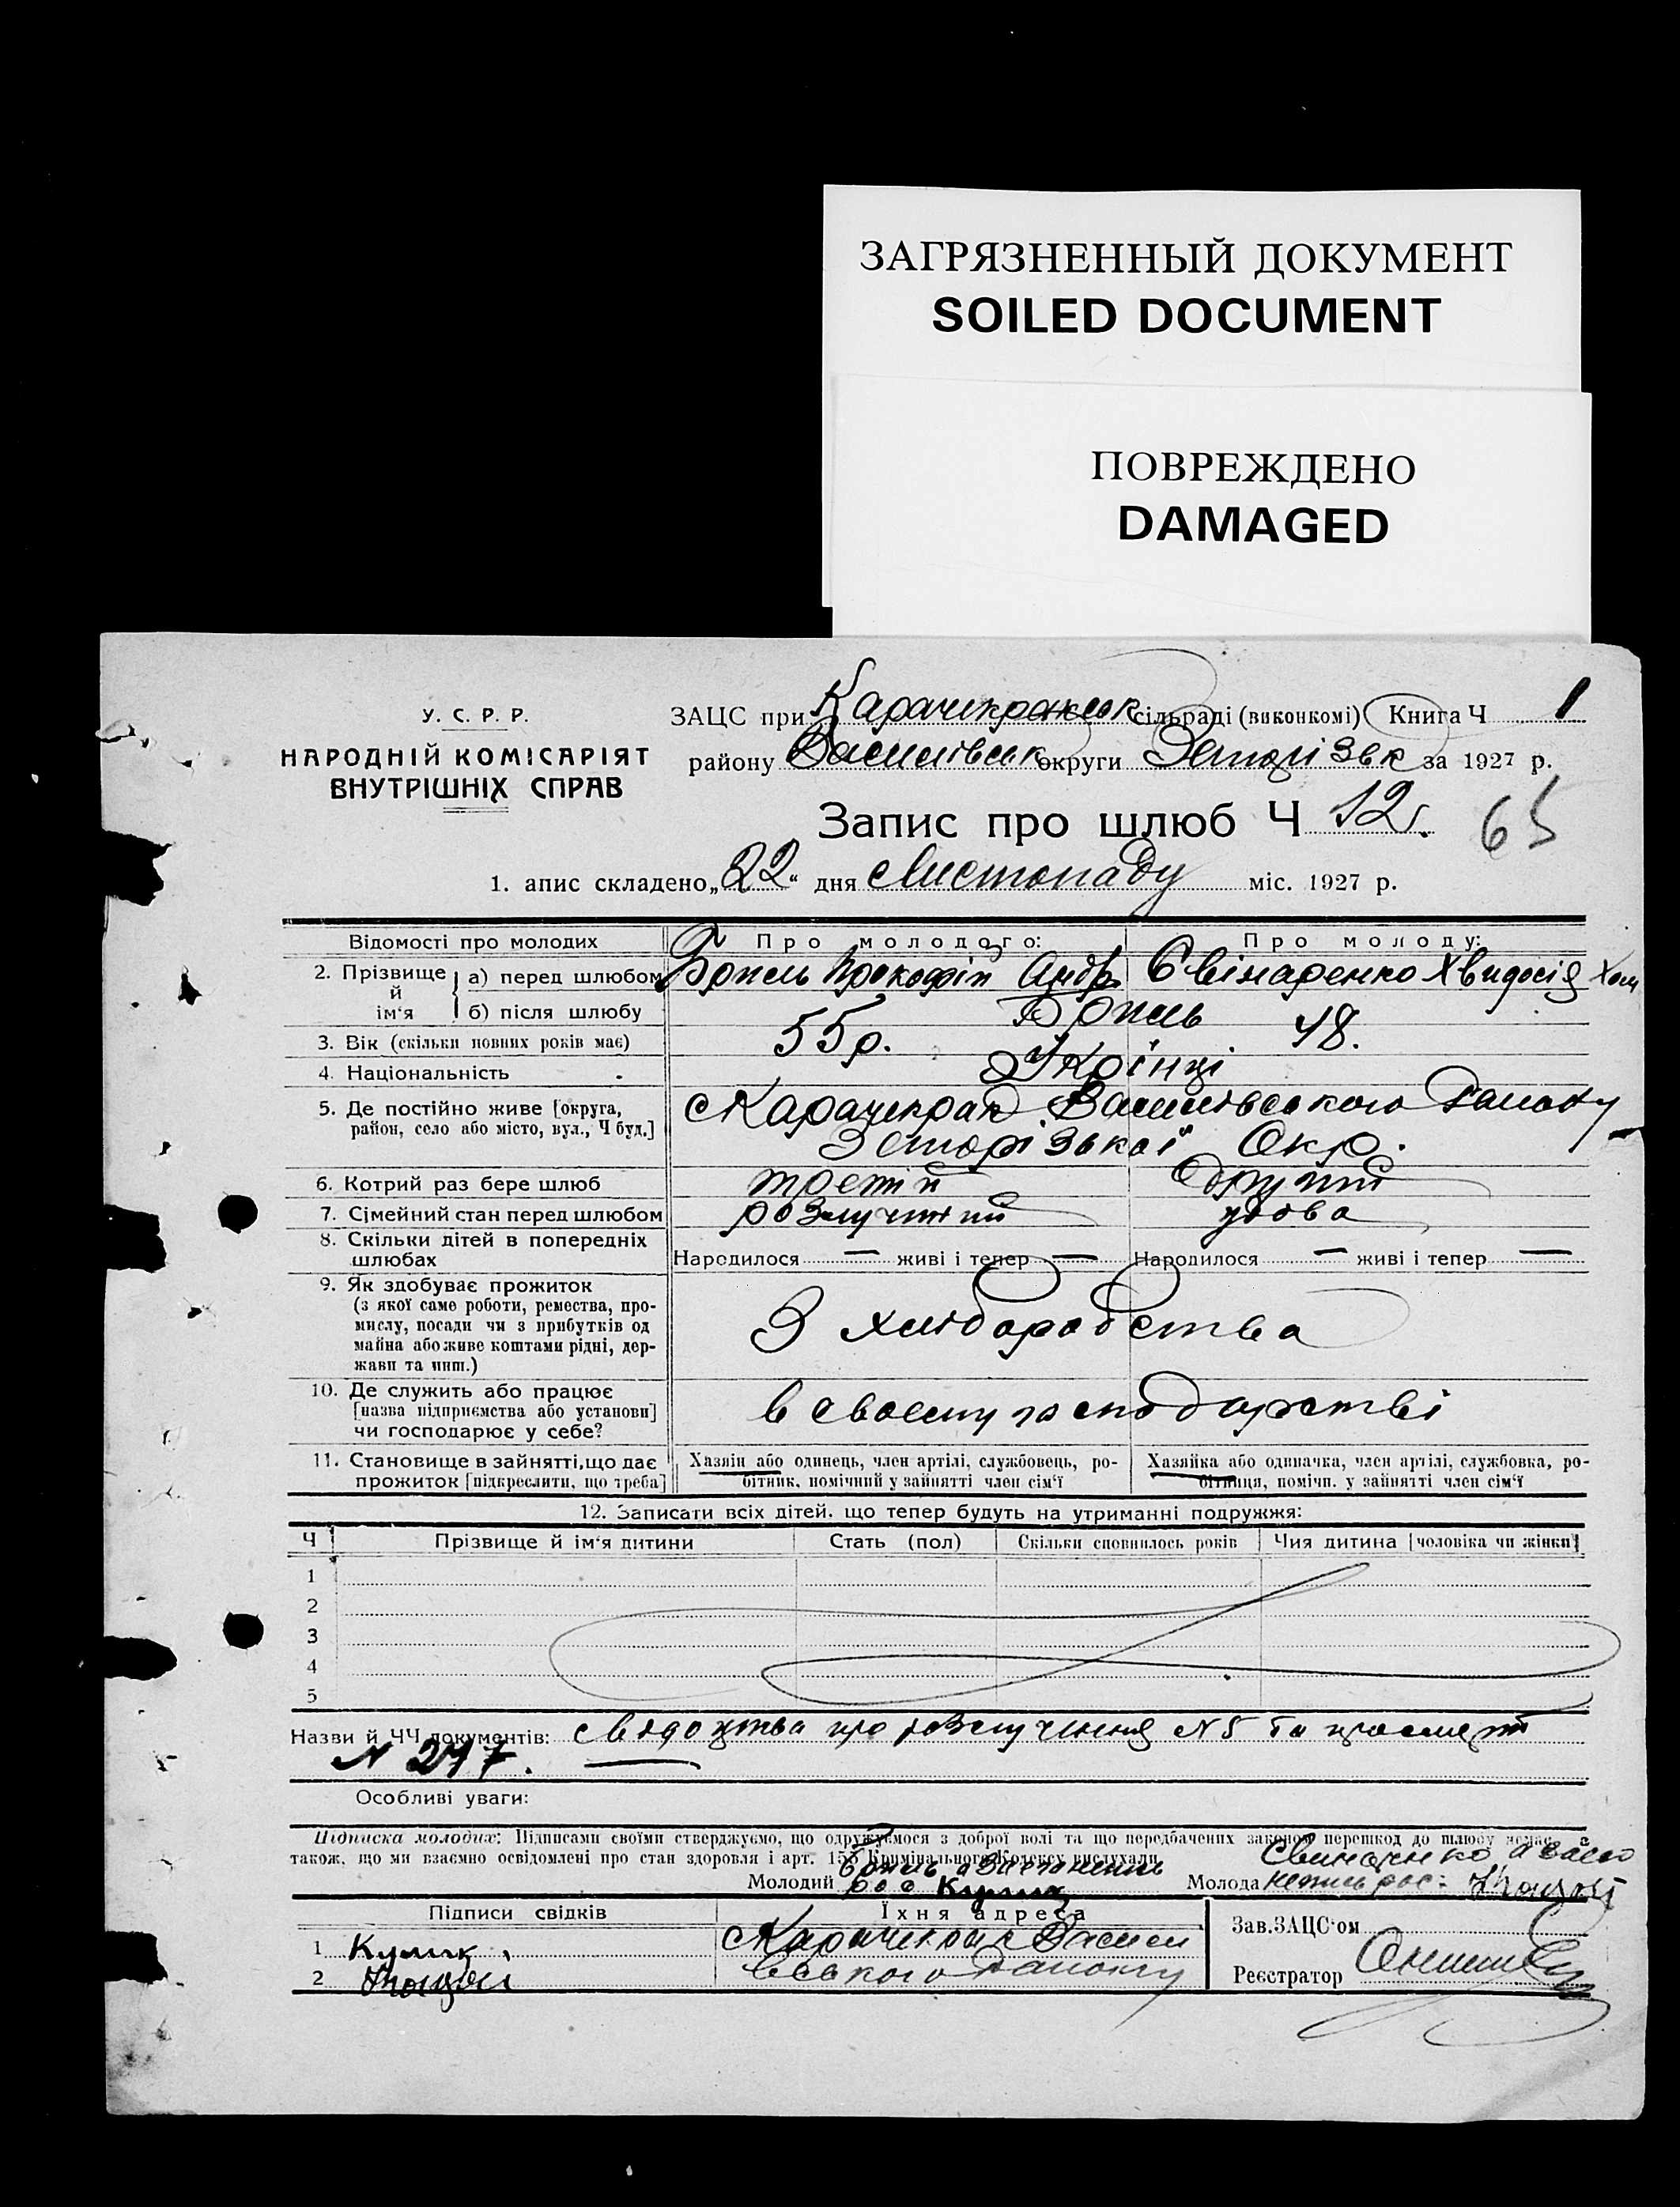 ЗАГРЯЗНЕННЫЙ ДОКУМЕНТ
SOILED DOCUMENT
ПОВРЕЖДЕНО
DAMAGED
У. С. Р. Р.
НАРОДНІЙ КОМІСАРІЯТ
ВНУТРІШНІХ СПРАВ
ЗАЦС при Карачекракськ сільраді (виконкомі) Книга Ч 1
району Василівськ округи Запорізьк за 1927 р.
Запис про шлюб Ч 12
65
1. апис складено „22“ дня Листопаду міс. 1927 р.
Відомості про молодих
Про молодого:
Про молоду:
2. Прізвище й ім‘я
а) перед шлюбом
Прокофій Андр
Свінаренко Хвидосія Хом
б) після шлюбу
3. Вік (скільки повних років має)
55 р.
48.
4. Національність
Україн͏ці
5. Де постійно живе [округа, район, село або місто, вул., Ч буд.]
с Карачекрак Василівського Району
Запорізької Окр.
6. Котрий раз бере шлюб
третій
другий
7. Сімейний стан перед шлюбом
розлучений
удова
8. Скільки дітей в попередніх шлюбах
Народилося — живі і тепер —
Народилося — живі і тепер —
9. Як здобуває прожиток
(з якої саме роботи, ремества, про-
мислу, посади чи з прибутків од
майна або живе коштами рідні, дер-
жави та инш.)
З хліборобства
10. Де служить або працює
[назва підприємства або установи]
чи господарює у себе?
в своему господарстві
11. Становище в зайнятті, що дає
прожиток [підкреслити, що треба]
Хазяїн або одинець, член артілі, службовець, ро-
бітник, помічний у зайнятті член сім‘ї
Хазяйка або одиначка, член артілі, службовка, ро-
бітниця, помічн. у зайнятті член сім‘ї
12. Записати всіх дітей. що тепер будуть на утриманні подружжя:
Ч
Прізвище й ім‘я дитини
Стать (пол)
Скільки сповнилось років
Чия дитина [чоловіка чи жінки]
1
2
3
4
5
Назви й ЧЧ документів: свідоцтва про розлучення N 5 та про смерт
N 247.
Особливі уваги:
Підписка молодих: Підписами своїми стверджуємо, що одружуємося з доброї волі та що передбачених законом перешкод до шлюбу немає, а
також, що ми взаємно освідомлені про стан здоровля і арт. 155 Кримінального Кодексу вислухали.
Молодий
Кулик
Молода
Підписи свідків
Їхня адреса
1 Кулик
с Карачекрак Васили
2
вського Району
Зав. ЗАЦС‘ом
Реєстратор